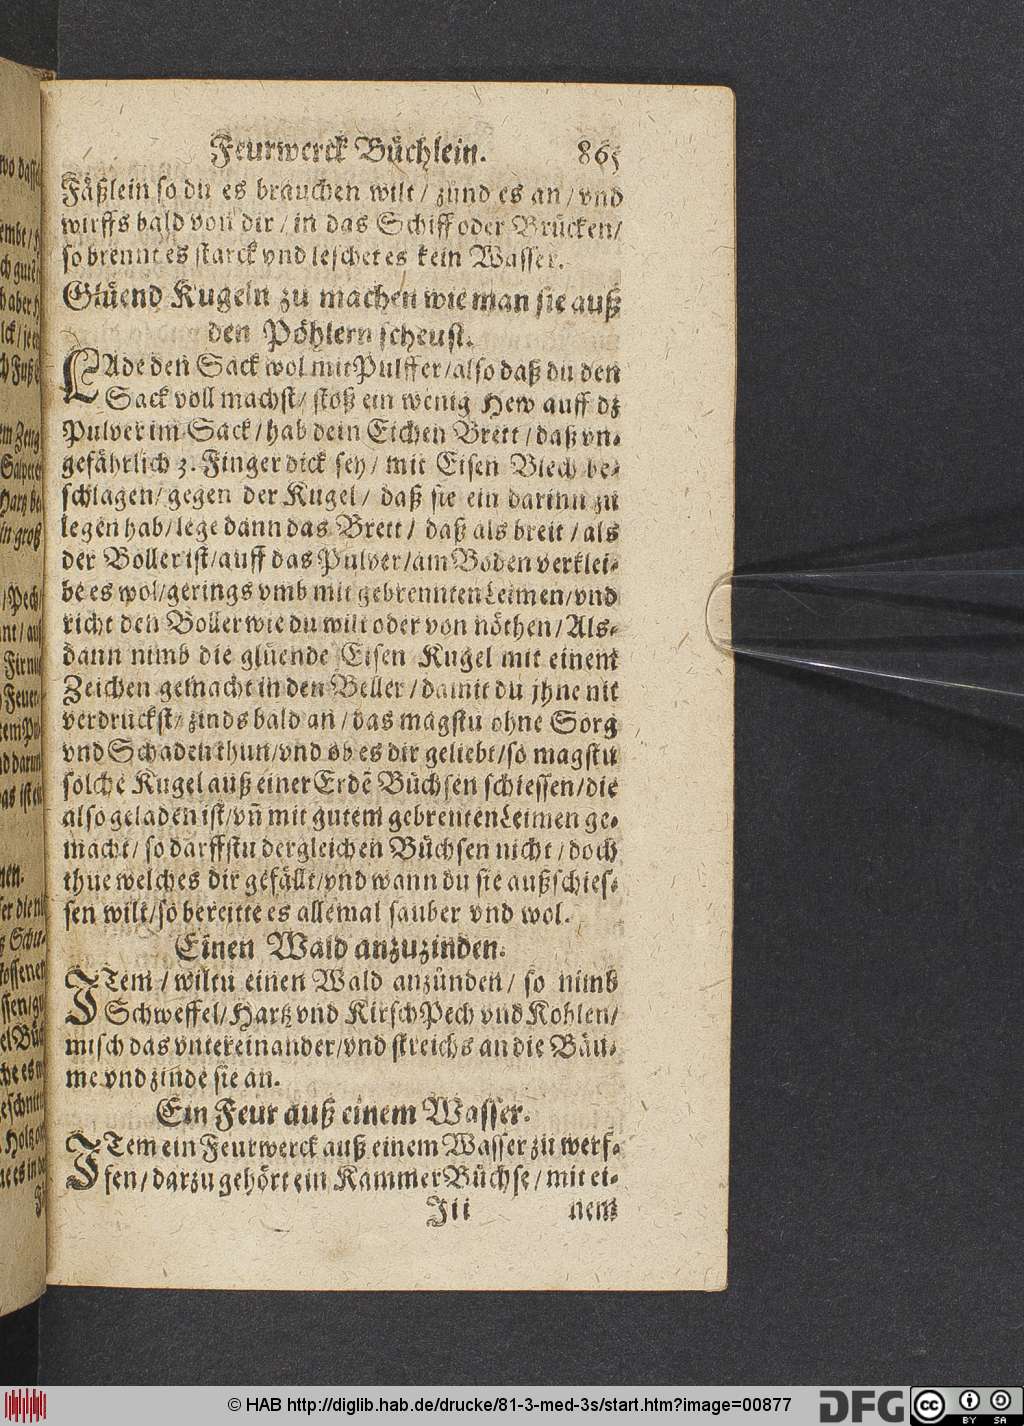 Feurwerck Büchlein. 865
Fäßlein so du es brauchen wilt / zünd es an / vnd
wirffs bald von dir / in das Schiff oder Brücken/
so brennt es starck vnd leschet es kein Wasser.
Glüend Kugeln zu machen wie man sie auß
den Pöhlern scheust.
LAde den Sack wol mit Pulffer/also daß du den
Sack voll machst/ stoß ein wenig Hew auff dz
Pulver im Sack / hab dein Eichen Brett / daß vn-
gefährlich 3. Finger dick sey/ mit Eisen Blech be-
schlagen/ gegen der Kugel / daß sie ein darinn zu
legen hab/lege dann das Brett / daß als breit / als
der Boller ist/auff das Pulver/am Boden verklei-
be es wol/gerings vmb mit gebrennten Leimen/vnd
richt den Boller wie du wilt oder von nöthen/Als-
dann nimb die glüende Eisen Kugel mit einem
Zeichen gemacht in den Beller / damit du jhne nit
verdruckst/ zinds bald an / das magstu ohne Sorg
vnd Schaden thun/vnd ob es dir geliebt/so magstu
solche Kugel auß einer Erdẽ Büchsen schiessen/die
also geladen ist/vñ mit gutem gebrenten Leimen ge-
macht/ so darffstu dergleichen Büchsen nicht / doch
thue welches dir gefällt/vnd wann du sie außschies-
sen wilt/so bereitte es allemal sauber vnd wol.
Einen Wald anzuzinden.
ITem / wiltu einen Wald anzünden / so nimb
Schweffel/ Hartz vnd Kirsch Pech vnd Kohlen/
misch das vntereinander/vnd streichs an die Bäu-
me vnd zinde sie an.
Ein Feur auß einem Wasser.
ITem ein Feurwerck auß einem Wasser zu werf-
fen/ darzu gehört ein Kammer Büchse / mit ei-
Jii nem
© HAB http://diglib.hab.de/drucke/81-3-med-3s/start.htm?image=00877
DFG
cc
BY SA